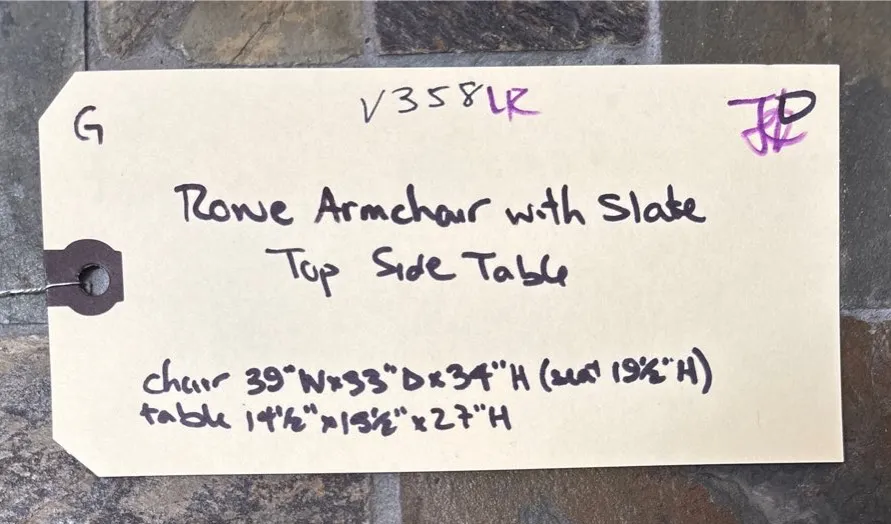 G
V358LR
Rowe Armchair with Slate
Top Side Table
chair 39"W x 33"D x 34"H (seat 19½"H)
table 14½" x 19½" x 27"H